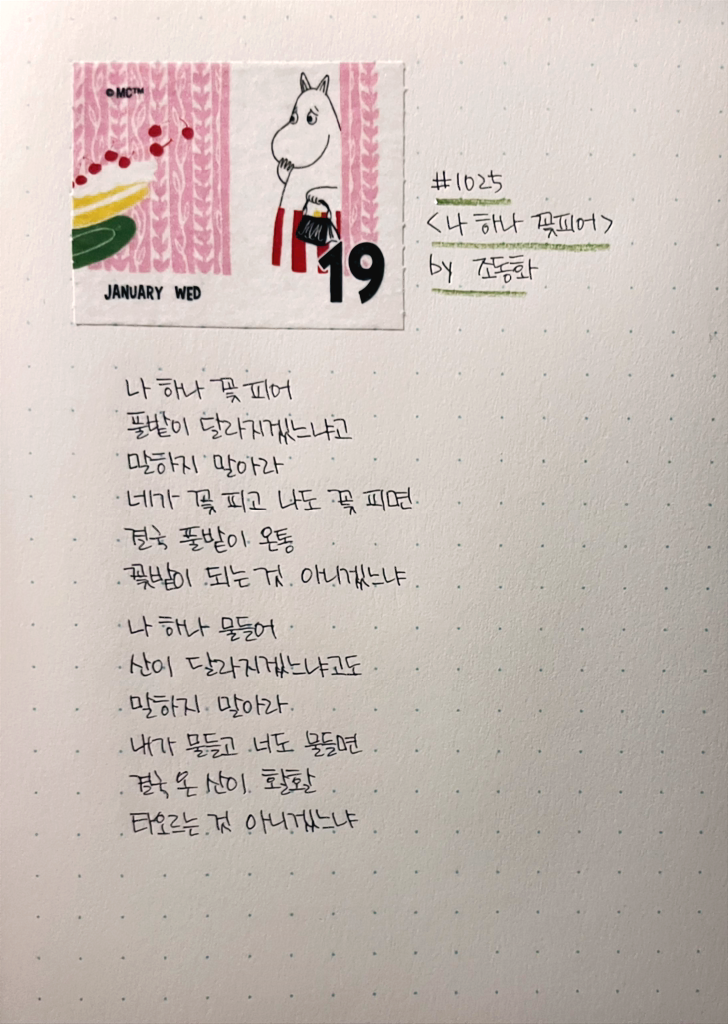 ©MC™
19
JANUARY WED
#1025
<나 하나 꽃피어>
by 조동화
나 하나 꽃 피어
풀밭이 달라지겠느냐고
말하지 말아라
네가 꽃 피고 나도 꽃 피면
결국 풀밭이 온통
꽃밭이 되는 것 아니겠느냐
나 하나 물들어
산이 달라지겠느냐고도
말하지 말아라
내가 물들고 너도 물들면
결국 온 산이 활활
타오르는 것 아니겠느냐